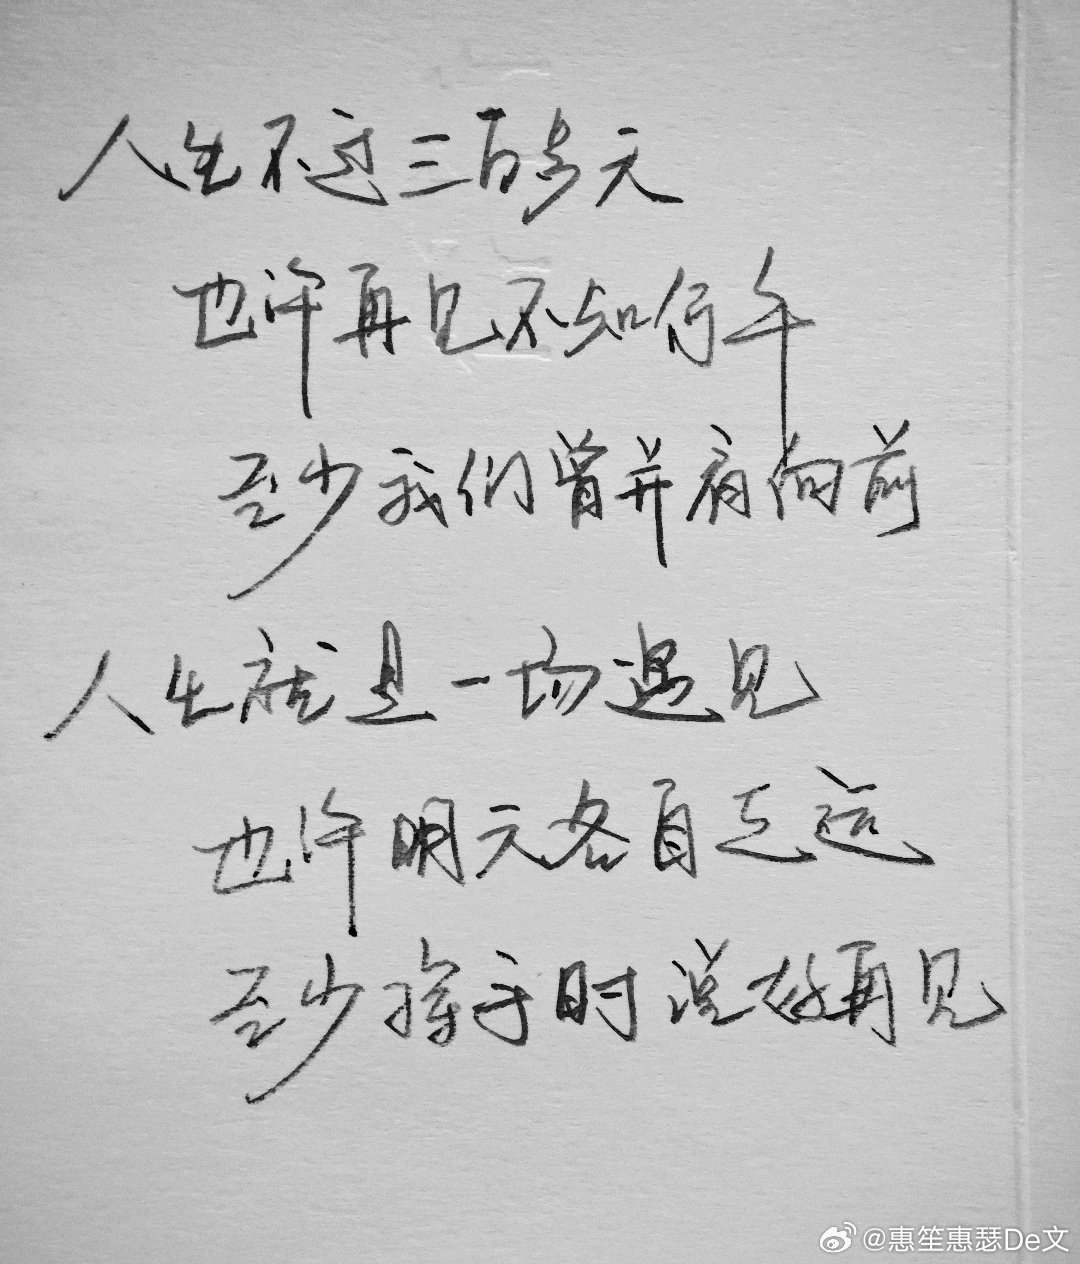 人生不过三百多天
也许再见不知何年
至少我们曾并肩向前
人生就是一场遇见
也许明天各自走远
至少挥手时说好再见
@惠笙惠瑟De文